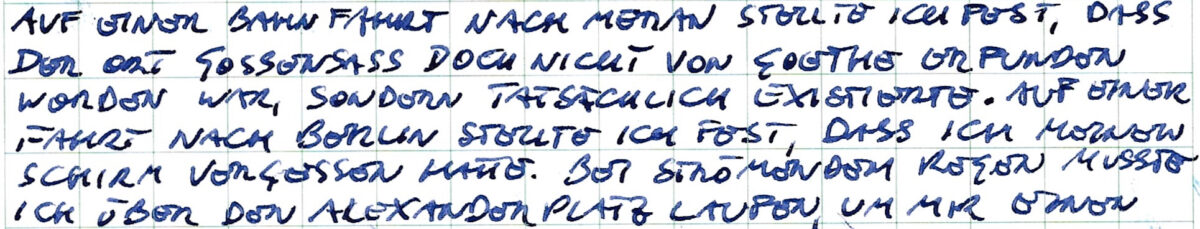 AUF EINER BAHNFAHRT NACH MERAN STELLTE ICH FEST, DASS
DER ORT GOSSENSASS DOCH NICHT VON GOETHE ERFUNDEN
WORDEN WAR, SONDERN TATSÄCHLICH EXISTIERTE. AUF EINER
FAHRT NACH BERLIN STELLTE ICH FEST, DASS ICH MEINEN
SCHIRM VERGESSEN HATTE. BEI STRÖMENDEM REGEN MUSSTE
ICH ÜBER DEN ALEXANDERPLATZ LAUFEN, UM MIR EINEN